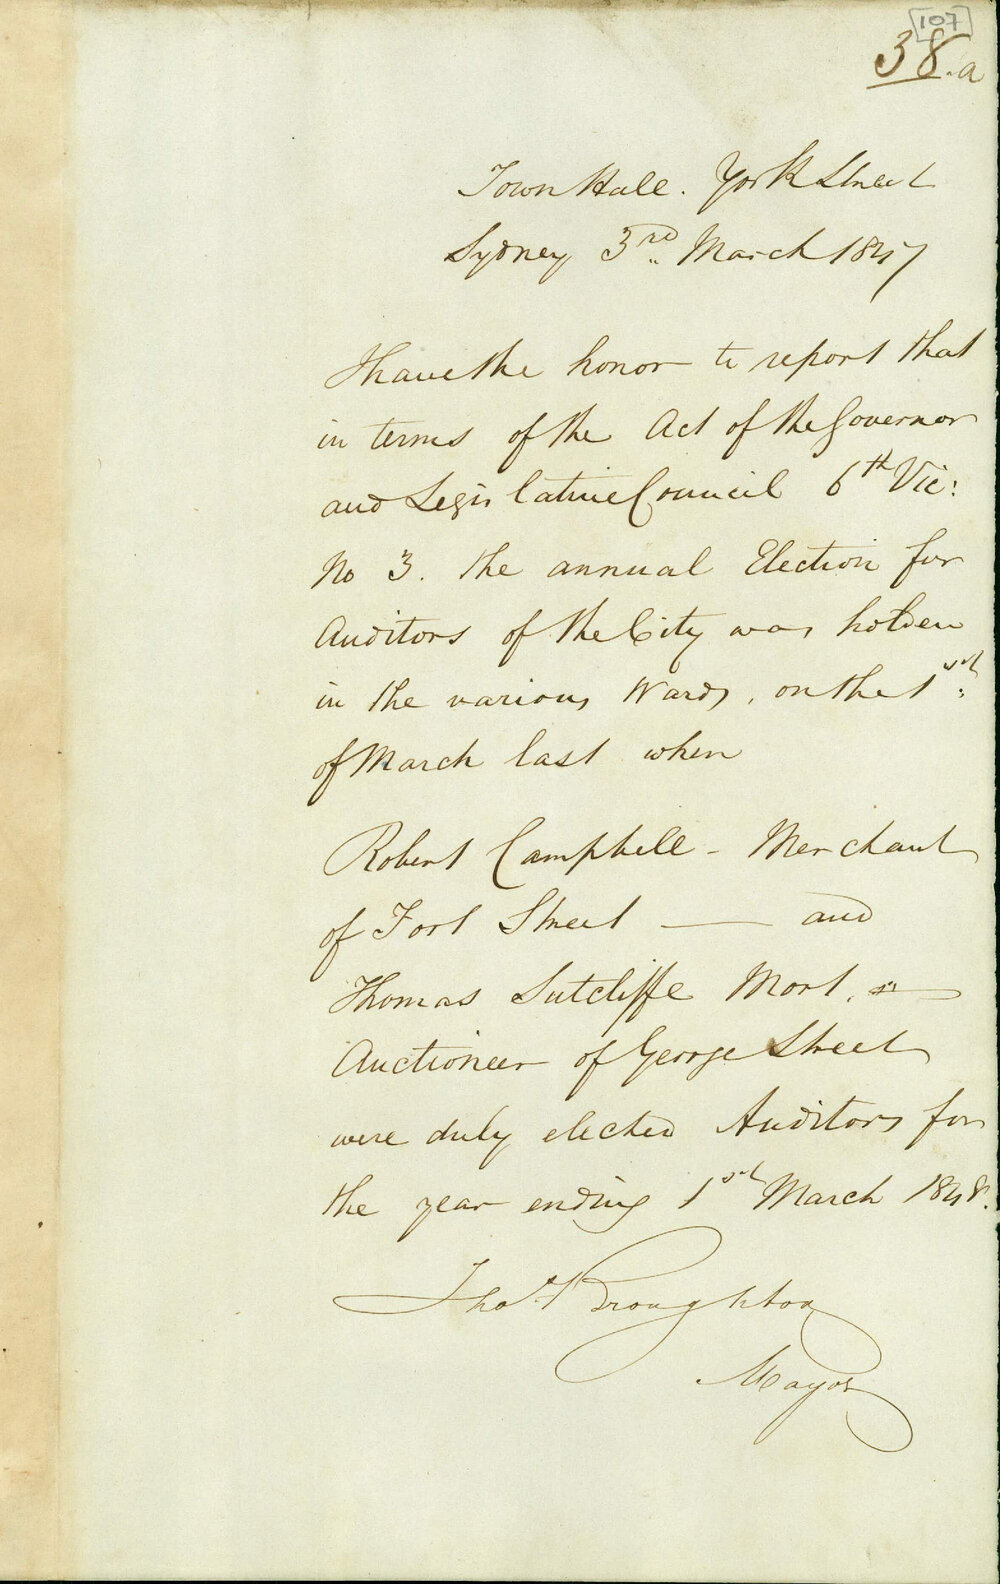 [107]
38.a
Town Hall. York Street
Sydney 3rd March 1847
I have the honor to report that
in terms of the Act of the Governor
and Legislative Council 6th Vic:
No 3. the annual Election for
Auditors of the City was holden
in the various Wards, on the 1st:
of March last when
Robert Campbell - Merchant
of Fort Street — and
Thomas Sutcliffe Mort.
Auctioneer of George Street
were duly elected Auditors for
the year ending 1st March 1848.
Thos Broughton
Mayor